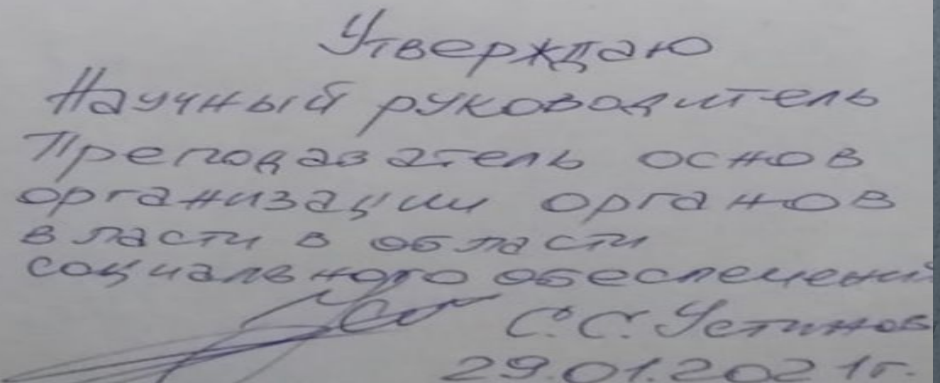 Утверждаю
Научный руководитель
Преподаватель основ
организации органов
власти в области
социального обеспечени
С.С. Устинов
29.01.2021г.